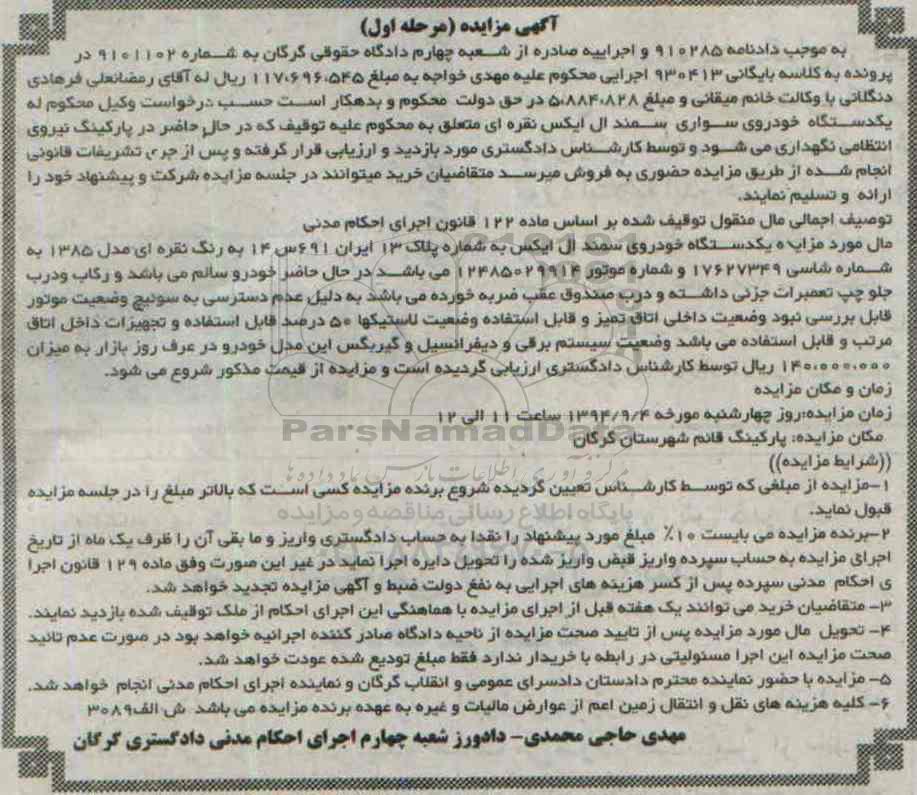 آگهی مزایده (مرحله اول)
به موجب دادنامه ۹۱۰۲۸۵ و اجراییه صادره از شعبه چهارم دادگاه حقوقی گرگان به شماره ۹۱۰۱۱۰۲ در
پرونده به کلاسه بایگانی ۹۳۰۴۱۳ اجرایی محکوم علیه مهدی خواجه به مبلغ ۱۱۷،۶۹۶،۵۴۵ ریال له آقای رمضانعلی فرهادی
دنگلانی با وکالت خانم میقانی و مبلغ ۵،۸۸۴،۸۲۸ در حق دولت محکوم و بدهکار است حسب درخواست وکیل محکوم له
یکدستگاه خودروی سواری سمند ال ایکس نقره ای متعلق به محکوم علیه توقیف که در حال حاضر در پارکینگ نیروی
انتظامی نگهداری می شود و توسط کارشناس دادگستری مورد بازدید و ارزیابی قرار گرفته و پس از جری تشریفات قانونی
انجام شده از طریق مزایده حضوری به فروش میرسد متقاضیان خرید میتوانند در جلسه مزایده شرکت و پیشنهاد خود را
ارائه و تسلیم نمایند.
توصیف اجمالی مال منقول توقیف شده بر اساس ماده ۱۲۲ قانون اجرای احکام مدنی
مال مورد مزایده یکدستگاه خودروی سمند ال ایکس به شماره پلاک ۱۳ ایران ۶۹۱س ۱۴ به رنگ نقره ای مدل ۱۳۸۵ به
شماره شاسی ۱۷۶۲۷۳۴۹ و شماره موتور ۱۲۴۸۵۰۲۹۹۱۴ می باشد در حال حاضر خودرو سالم می باشد و رکاب ودرب
جلو چپ تعمیرات جزئی داشته و درب صندوق عقب ضربه خورده می باشد به دلیل عدم دسترسی به سوئیچ وضعیت موتور
قابل بررسی نبود وضعیت داخلی اتاق تمیز و قابل استفاده وضعیت لاستیکها ۵۰ درصد قابل استفاده و تجهیزات داخل اتاق
مرتب و قابل استفاده می باشد وضعیت سیستم برقی و دیفرانسیل و گیربگس این مدل خودرو در عرف روز بازار به میزان
۱۴۰،۰۰۰،۰۰۰ ریال توسط کارشناس دادگستری ارزیابی گردیده است و مزایده از قیمت مذکور شروع می شود.
زمان و مکان مزایده
زمان مزایده:روز چهارشنبه مورخه ۱۳۹۴/۹/۴ ساعت ۱۱ الی ۱۲
ParsNamadData
مکان مزایده: پارکینگ قائم شهرستان گرگان
((شرایط مزایده))
مرکز فرآوری اطلاعات پارس نماد داده ها
۱-مزایده از مبلغی که توسط کارشناس تعیین گردیده شروع برنده مزایده کسی است که بالاتر مبلغ را در جلسه مزایده
قبول نماید.
پایگاه اطلاع رسانی مناقصه و مزایده
۲-برنده مزایده می بایست ۱۰٪ مبلغ مورد پیشنهاد را نقدا به حساب دادگستری واریز و ما بقی آن را ظرف یک ماه از تاریخ
اجرای مزایده به حساب سپرده واریز قبض واریز شده را تحویل دایره اجرا نماید در غیر این صورت وفق ماده ۱۲۹ قانون اجرا
ی احکام مدنی سپرده پس از کسر هزینه های اجرایی به نفع دولت ضبط و آگهی مزایده تجدید خواهد شد.
۳- متقاضیان خرید می توانند یک هفته قبل از اجرای مزایده با هماهنگی این اجرای احکام از ملک توقیف شده بازدید نمایند.
۴- تحویل مال مورد مزایده پس از تایید صحت مزایده از ناحیه دادگاه صادر کننده اجرائیه خواهد بود در صورت عدم تائید
صحت مزایده این اجرا مسئولیتی در رابطه با خریدار ندارد فقط مبلغ تودیع شده عودت خواهد شد.
۵- مزایده با حضور نماینده محترم دادستان دادسرای عمومی و انقلاب گرگان و نماینده اجرای احکام مدنی انجام خواهد شد.
۶- کلیه هزینه های نقل و انتقال زمین اعم از عوارض مالیات و غیره به عهده برنده مزایده می باشد ش الف۳۰۸۹
مهدی حاجی محمدی- دادورز شعبه چهارم اجرای احکام مدنی دادگستری گرگان